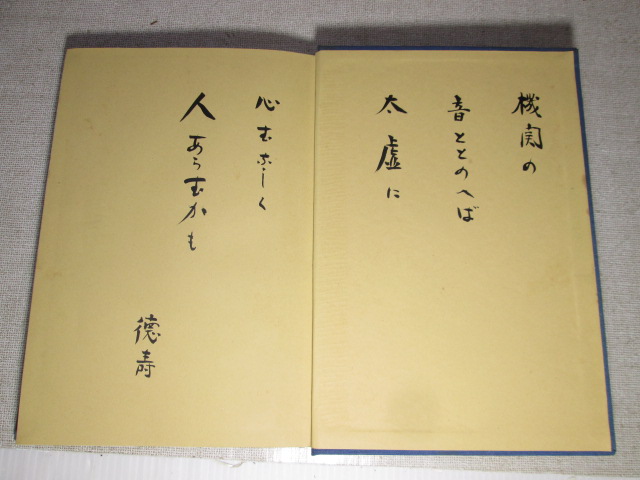 機関の
音ととのへば
太虚に
心むなしく
人あらむかも
徳寿